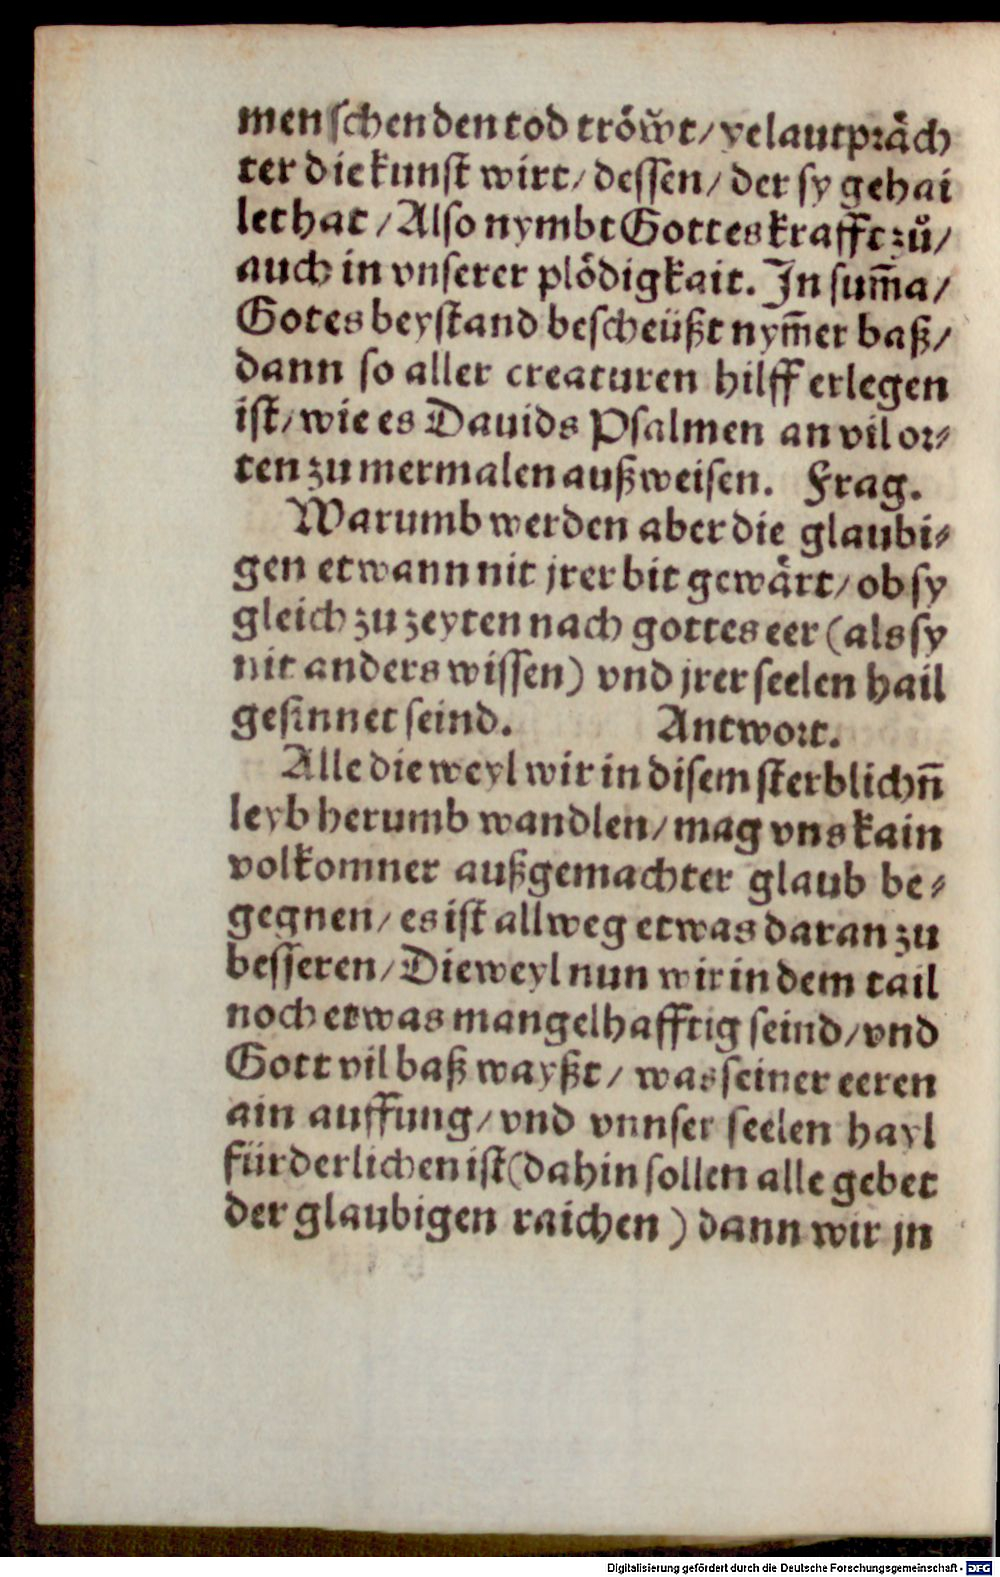 menschen den tod tröwt/ ye lautpräch
ter die kunst wirt/ dessen/ der sy gehai
let hat /Also nymbt Gottes krafft zů/
auch in vnserer plödigkait. In sum̄a/
Gotes beystand bescheüßt nym̄er baß/
dann so aller creaturen hilff erlegen
ist/ wie es Dauids Psalmen an vil or⸗
ten zu mermalen außweisen. Frag.
Warumb werden aber die glaubi⸗
gen etwann nit jrer bit gewärt/ ob sy
gleich zu zeyten nach gottes eer (als sy
nit anders wissen) vnd jrer seelen hail
gesinnet seind. Antwort.
Alle die weyl wir in disem sterblichn̄
leyb herumb wandlen/ mag vns kain
volkomner außgemachter glaub be⸗
gegnen/ es ist allweg etwas daran zu
besseren/ Dieweyl nun wir in dem tail
noch etwas mangelhafftig seind/ vnd
Gott vil baß wayßt/ was seiner eeren
ain auffung/ vnd vnnser seelen hayl
fürderlichen ist (dahin sollen alle gebet
der glaubigen raichen) dann wir jn
Digitalisierung gefördert durch die Deutsche Forschungsgemeinschaft - DFG